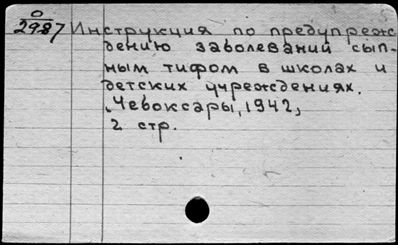 О
2987 Инструкция по предупреж
дению заболеваний сып-
ным тифом в школах и
детских учреждениях.
Чебоксары, 1942,
2 стр.